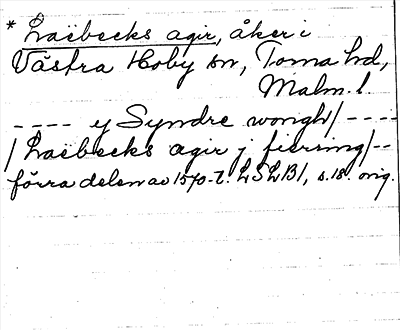 * Laëbecks agir, åker i
Västra Hoby sn, Torna hd,
Malm. l.
---- y Syndre wongh/----
/Laëbecks agir j fierring/--
förra delen av 1570-t. LSLB1, s. 18. orig.